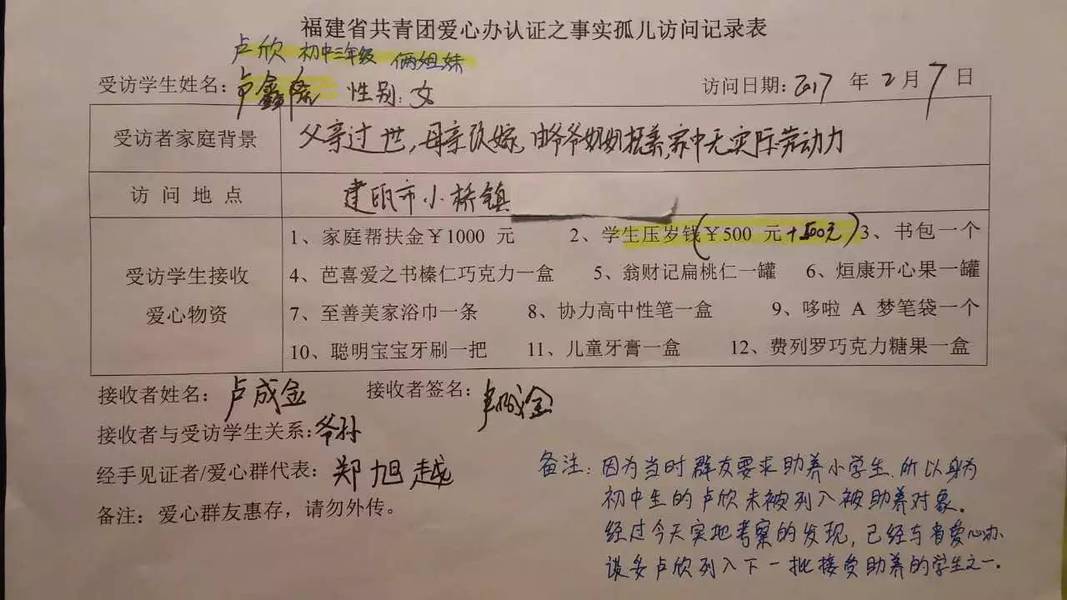 福建省共青团爱心办认证之事实孤儿访问记录表
卢欣 初中三年级 俩姐妹
受访学生姓名：卢鑫 性别：女 访问日期：2017 年 2 月 7 日
受访者家庭背景 父亲过世，母亲改嫁，由爷爷奶奶抚养，家中无实际劳动力
访 问 地 点 建瓯市小桥镇
1、家庭帮扶金￥1000 元 2、学生压岁钱（￥500 元+500元）3、书包一个
受访学生接收 4、芭喜爱之书榛仁巧克力一盒 5、翁财记扁桃仁一罐 6、烜康开心果一罐
爱心物资 7、至善美家浴巾一条 8、协力高中性笔一盒 9、哆啦 A 梦笔袋一个
10、聪明宝宝牙刷一把 11、儿童牙膏一盒 12、费列罗巧克力糖果一盒
接收者姓名：卢成金 接收者签名：卢成金
接收者与受访学生关系：爷孙
经手见证者/爱心群代表：郑旭越
备注：爱心群友惠存，请勿外传。
备注：因为当时群友要求助养小学生，所以身为
初中生的卢欣未被列入被助养对象。
经过今天实地考察的发现，已经与省爱心办
谈妥卢欣列入下一批接受助养的学生之一。